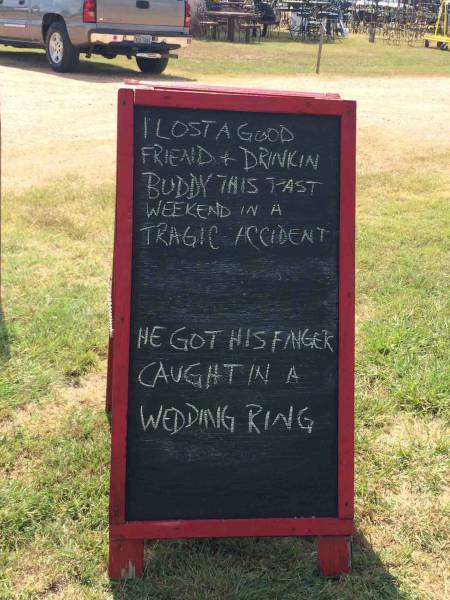 I LOST A GOOD
FRIEND + DRINKIN
BUDDY THIS PAST
WEEKEND IN A
TRAGIC ACCIDENT
HE GOT HIS FINGER
CAUGHT IN A
WEDDING RING